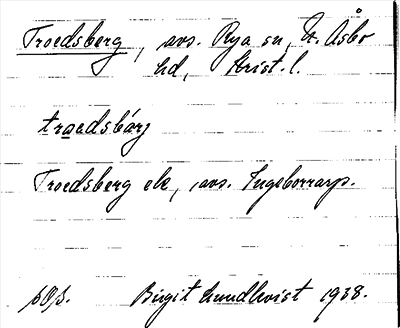 Troedsberg, avs. Rya sn, N. Åsbo
hd, Krist. l.
troedsbärj
Troedsberg ek, avs. Ingeborrarp.
Birgit Lundkvist 1938.